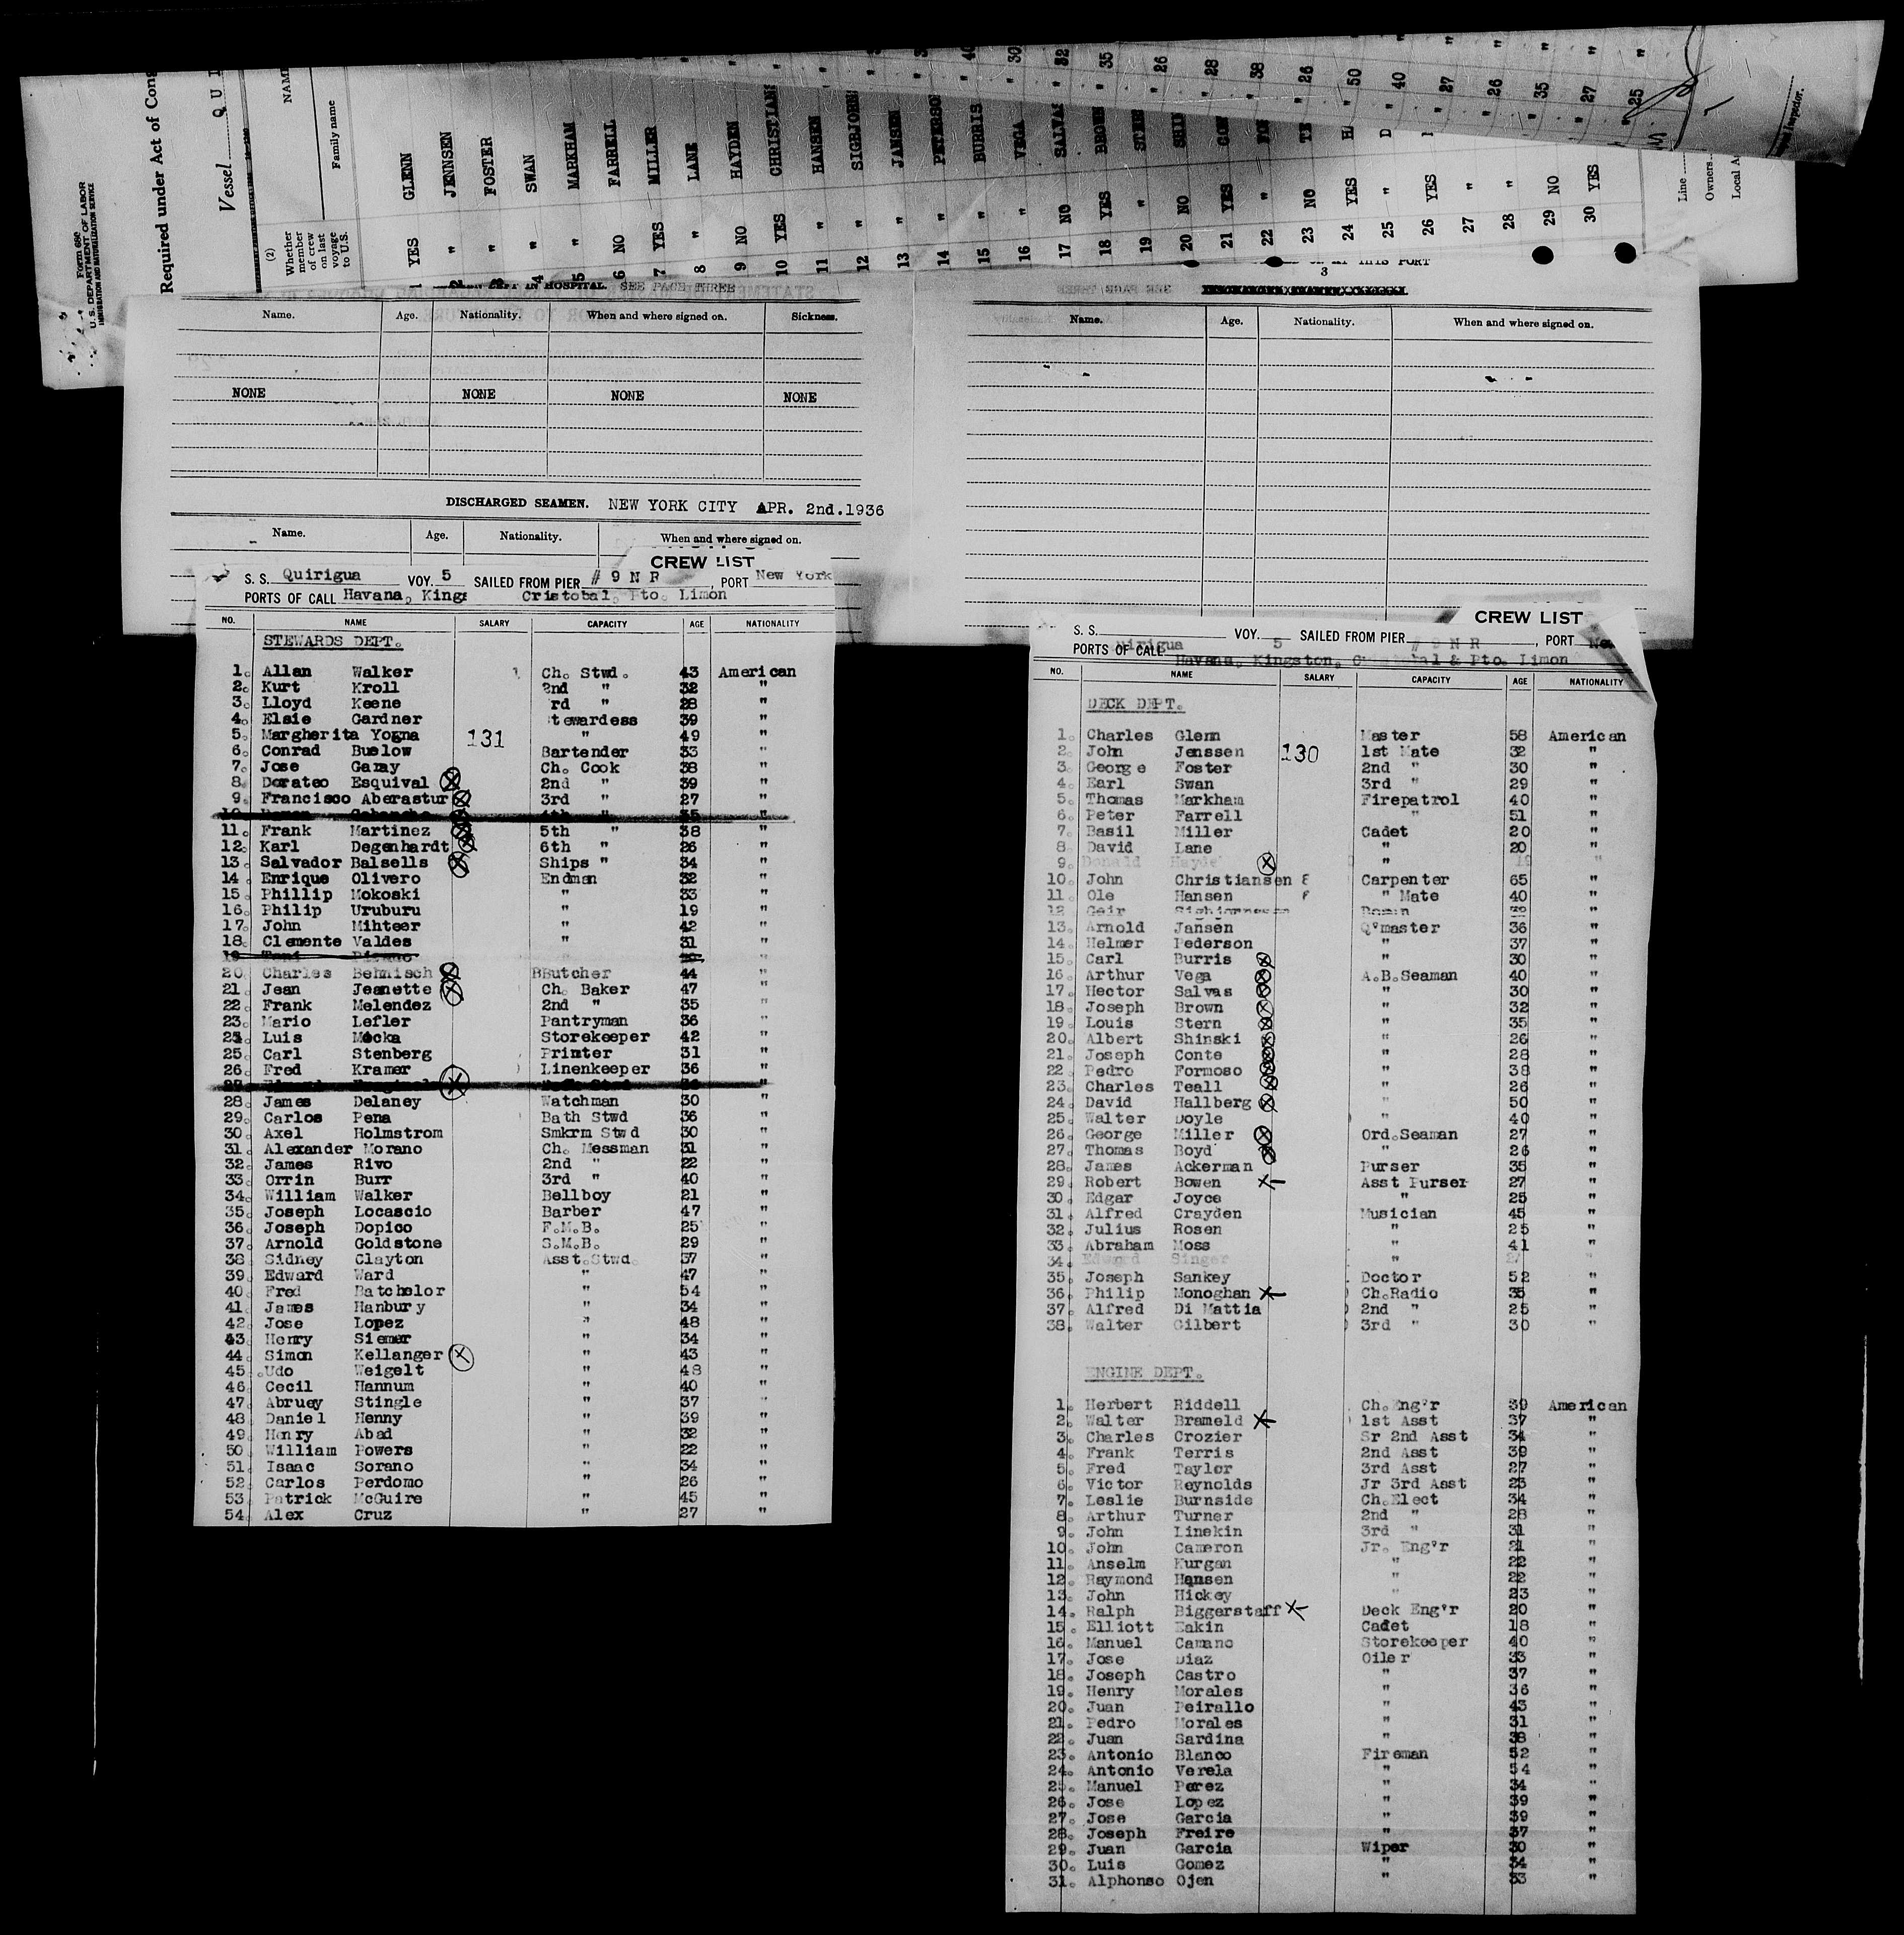 Form 680
U. S. DEPARTMENT OF LABOR
IMMIGRATION AND NATURALIZATION SERVICE
Required under Act of Cong
Vessel QUI
(2)
Whether member of crew on last voyage to U.S.
NAME
Family name
1 YES GLENN
2 " JENNSEN
3 " FOSTER
4 " SWAN
5 " MARKHAM
6 NO FARRELL
7 YES MILLER
8 " LANE
9 NO HAYDEN
10 YES CHRISTIANS
11 " HANSEN
12 " SIGBJORNS
13 " JANSEN
14 " PETERSO
15 " BURRIS
16 " VEGA
17 NO SALVA " 32
18 YES BROWN " 35
19 " STER
20 NO SHIN
21 YES CON
22 "
23 NO TE " 26
24 YES HA " 50
25 " D " 40
26 YES " 27
27 " " 26
28 "
29 NO
30 YES
Line
Owners
Local A
Inspector.
THIS PORT
3
IN HOSPITAL. SEE PAGE THREE
Name. Age. Nationality. When and where signed on. Sickness.
NONE NONE NONE NONE
DISCHARGED SEAMEN. NEW YORK CITY APR. 2nd.1936
Name. Age. Nationality. When and where signed on.
Name. Age. Nationality. When and where signed on.
CREW LIST
S. S. Quirigua VOY. 5 SAILED FROM PIER # 9 N R, PORT New York
PORTS OF CALL Havana, Kings Cristobal, Pto. Limon
NO. NAME SALARY CAPACITY AGE NATIONALITY
STEWARDS DEPT.
1. Allan Walker Ch. Stwd. 43 American
2. Kurt Kroll 2nd " 32 "
3. Lloyd Keene rd " 28 "
4. Elsie Gardner tewardess 39 "
5. Margherita Yogna 131 " 49 "
6. Conrad Buelow Bartender 33 "
7. Jose Garay Ch. Cook 38 "
8. Dorateo Esquival 2nd " 39 "
9. Francisco Aberastur 3rd " 27 "
10. 4th " 35 "
11. Frank Martinez 5th " 38 "
12. Karl Degenhardt 6th " 26 "
13. Salvador Balsells Ships " 34 "
14. Enrique Olivero Endman 32 "
15. Phillip Mokoski " 33 "
16. Philip Uruburu " 19 "
17. John Mihteer " 42 "
18. Clemente Valdes " 31 "
19
20. Charles Behnisch BButcher 44 "
21. Jean Jeanette Ch. Baker 47 "
22. Frank Melendez 2nd " 35 "
23. Mario Lefler Pantryman 36 "
24. Luis Mocka Storekeeper 42 "
25. Carl Stenberg Printer 31 "
26. Fred Kramer Linenkeeper 36 "
27. "
28. James Delaney Watchman 30 "
29. Carlos Pena Bath Stwd 36 "
30. Axel Holmstrom Smkrm Stwd 30 "
31. Alexander Morano Ch. Messman 31 "
32. James Rivo 2nd " 22 "
33. Orrin Burr 3rd " 40 "
34. William Walker Bellboy 21 "
35. Joseph Locascio Barber 47 "
36. Joseph Dopico F.M.B. 25 "
37. Arnold Goldstone S.M.B. 29 "
38. Sidney Clayton Asst.Stwd. 57 "
39. Edward Ward " 47 "
40. Fred Batchelor " 54 "
41. James Hanbury " 34 "
42. Jose Lopez " 48 "
43. Henry Siemer " 34 "
44. Simon Kellanger " 43 "
45. Udo Weigelt " 48 "
46. Cecil Hannum " 40 "
47. Abruey Stingle " 37 "
48. Daniel Henny " 39 "
49. Henry Abad " 32 "
50. William Powers " 22 "
51. Isaac Sorano " 34 "
52. Carlos Perdomo " 26 "
53. Patrick McGuire " 45 "
54. Alex Cruz " 27 "
CREW LIST
S. S. uirigua VOY. 5 SAILED FROM PIER # 9 N R, PORT New
PORTS OF CALL Havana, Kingston, Cristobal & Pto. Limon
NO. NAME SALARY CAPACITY AGE NATIONALITY
DECK DEPT.
1. Charles Glenn Master 58 American
2. John Jenssen 130 1st Mate 32 "
3. George Foster 2nd " 30 "
4. Earl Swan 3rd " 29 "
5. Thomas Markham Firepatrol 40 "
6. Peter Farrell " 51 "
7. Basil Miller Cadet 20 "
8. David Lane " 20 "
9. Donald Hayde " 19 "
10. John Christiansen Carpenter 65 "
11. Ole Hansen " Mate 40 "
12 Geir Sigbjornessen Bosun 32 "
13. Arnold Jansen Q'master 36 "
14. Helmer Pederson " 37 "
15. Carl Burris " 30 "
16. Arthur Vega A.B.Seaman 40 "
17. Hector Salvas " 30 "
18. Joseph Brown " 32 "
19. Louis Stern " 35 "
20. Albert Shinski " 26 "
21. Joseph Conte " 28 "
22. Pedro Formoso " 38 "
23. Charles Teall " 26 "
24. David Hallberg " 50 "
25. Walter Doyle " 40 "
26. George Miller Ord.Seaman 27 "
27. Thomas Boyd " 26 "
28. James Ackerman Purser 35 "
29. Robert Bowen Asst Purser 27 "
30. Edgar Joyce " 25 "
31. Alfred Crayden Musician 45 "
32. Julius Rosen " 25 "
33. Abraham Moss " 41 "
34. Edward Singer " "
35. Joseph Sankey Doctor 52 "
36. Philip Monoghan Ch.Radio 35 "
37. Alfred Di Mattia 2nd " 25 "
38. Walter Gilbert 3rd " 30 "
ENGINE DEPT.
1. Herbert Riddell Ch.Eng'r 39 American
2. Walter Brameld 1st Asst 37 "
3. Charles Crozier Sr 2nd Asst 34 "
4. Frank Terris 2nd Asst 39 "
5. Fred Taylor 3rd Asst 27 "
6. Victor Reynolds Jr 3rd Asst 23 "
7. Leslie Burnside Ch.Elect 34 "
8. Arthur Turner 2nd " 28 "
9. John Linekin 3rd " 31 "
10. John Cameron Jr. Eng'r 21 "
11. Anselm Kurgan " 22 "
12. Raymond Hansen " 22 "
13. John Hickey " 23 "
14. Ralph Biggerstaff Deck Eng'r 20 "
15. Elliott Eakin Cadet 18 "
16. Manuel Camano Storekeeper 40 "
17. Jose Diaz Oiler 33 "
18. Joseph Castro " 37 "
19. Henry Morales " 36 "
20. Juan Peirallo " 43 "
21. Pedro Morales " 31 "
22. Juan Sardina " 38 "
23. Antonio Blanco Fireman 52 "
24. Antonio Verela " 54 "
25. Manuel Perez " 34 "
26. Jose Lopez " 39 "
27. Jose Garcia " 39 "
28. Joseph Freire " 37 "
29. Juan Garcia Wiper 30 "
30. Luis Gomez " 34 "
31. Alphonso Ojen " 33 "